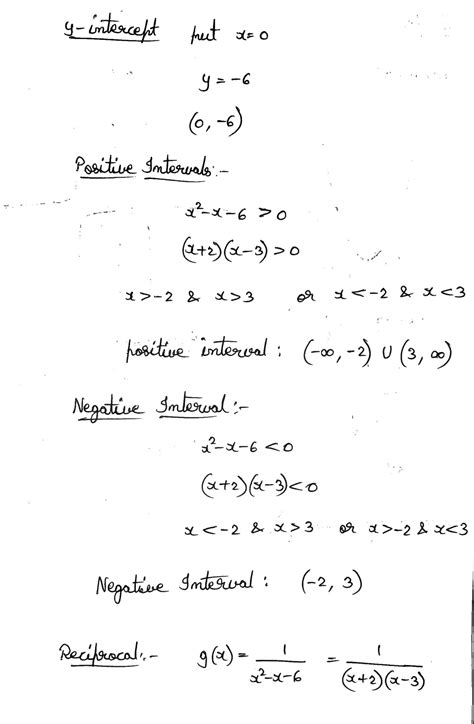 y-intercept put x=0
y = -6
(0, -6)
Positive Intervals:-
x²-x-6 > 0
(x+2)(x-3) > 0
x>-2 & x>3 or x<-2 & x<3
positive interval : (-∞, -2) ∪ (3, ∞)
Negative Interval:-
x²-x-6 < 0
(x+2)(x-3) < 0
x<-2 & x>3 or x>-2 & x<3
Negative Interval : (-2, 3)
Reciprocal:- g(x) = 1/(x²-x-6) = 1/((x+2)(x-3))